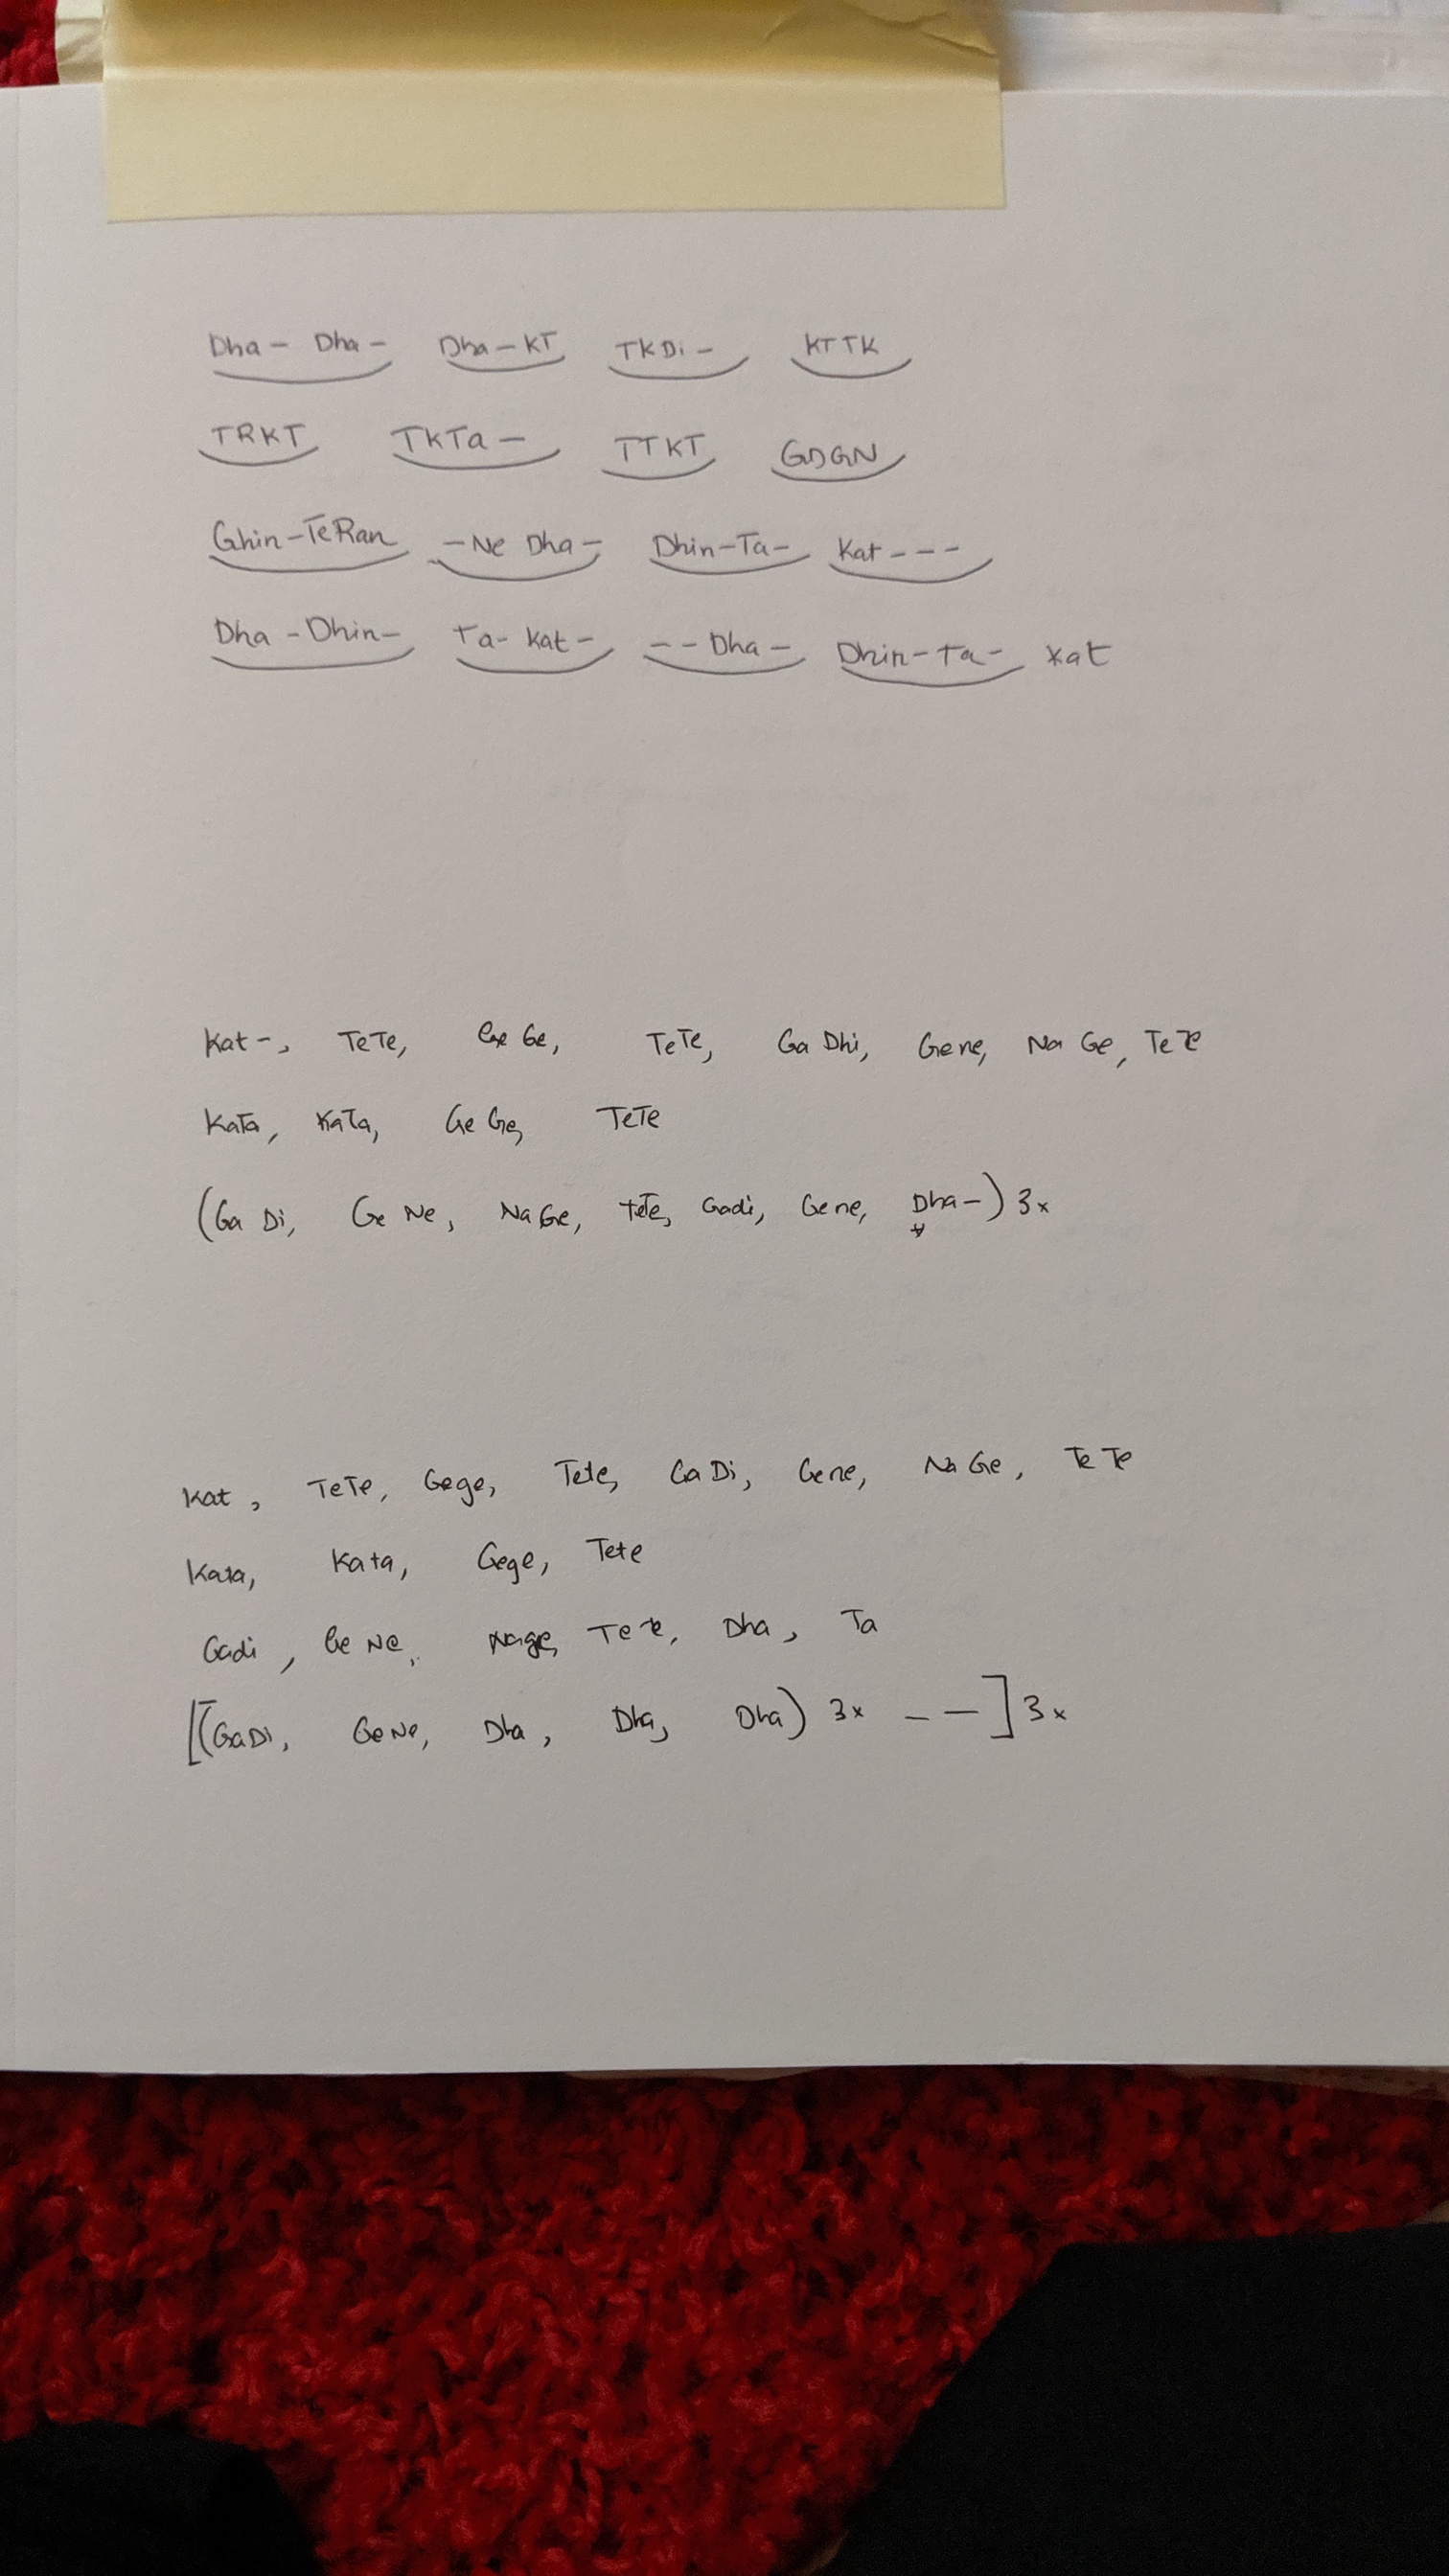 Dha- Dha- Dha-KT TKDi- KTTK
TRKT TKTa- TTKT GDGN
Ghin-TeRan -Ne Dha- Dhin-Ta- Kat---
Dha-Dhin- Ta-Kat- --Dha- Dhin-Ta- Kat
Kat-, TeTe, GeGe, TeTe, GaDhi, Gene, NaGe, TeTe
KaTa, KaTa, GeGe, TeTe
(Ga Di, Ge Ne, NaGe, teTe, Gadi, Gene, Dha-) 3x
Kat, TeTe, Gege, Tete, GaDi, Gene, NaGe, TeTe
Kata, Kata, Gege, Tete
Gadi, Ge Ne, Nage, TeTe, Dha, Ta
[(GaDi, GeNe, Dha, Dha, Dha) 3x --] 3x